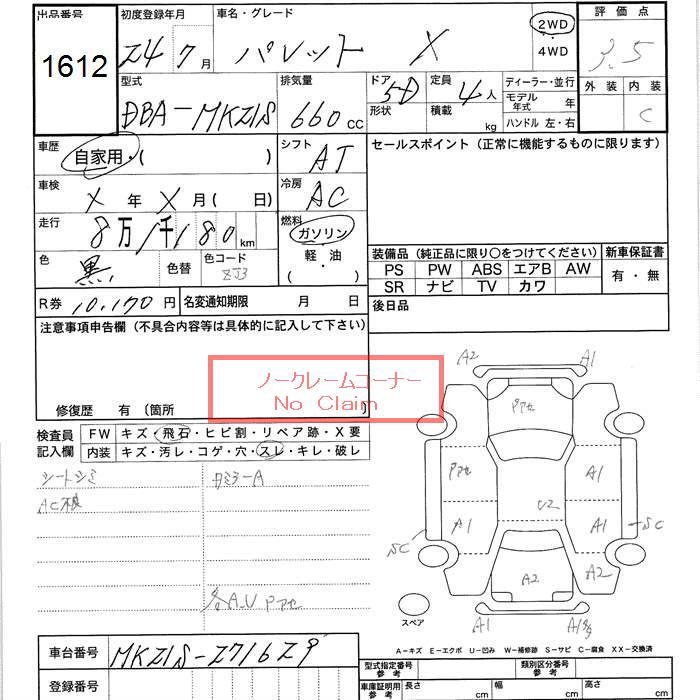 出品番号 初度登録年月 車名・グレード 評価点
1612 24 7月 パレット X 2WD 4WD 3.5
型式 排気量 ドア 形状 定員 積載 ディーラー・並行 外装 内装
DBA-MK21S 660cc 5D 4人 kg モデル年式 年 ハンドル 左・右 C
車歴 自家用・( ) シフト AT セールスポイント (正常に機能するものに限ります)
車検 X年 X月 ( 日) 冷房 AC
走行 8万1千180km 燃料 ガソリン
軽・油
( ・ )
色 黒 色替 色コード ZJ3
装備品 (純正品に限り○をつけてください) 新車保証書
PS PW ABS エアB AW 有・無
SR ナビ TV カワ
R券 10,170円 名変通知期限 月 日 後日品
注意事項申告欄 (不具合内容等は具体的に記入して下さい)
ノークレームコーナー
No Claim
修復歴 有 (箇所 )
検査員 記入欄
FW キズ・飛石・ヒビ割・リペア跡・X要
内装 キズ・汚レ・コゲ・穴・スレ・キレ・破レ
シートシミ
AC不良
各A.U Pアセ
A2 A1
Pアセ
Pアセ A1
U2
A1 A1
SC SC
A2 A2
スペア A1
A-キズ E-エクボ U-凹み W-補修跡 S-サビ C-腐食 XX-交換済
車台番号 MK21S-271629
登録番号
型式指定番号 参考 類別区分番号 参考
車庫証明用 参考 長さ cm 幅 cm 高さ cm